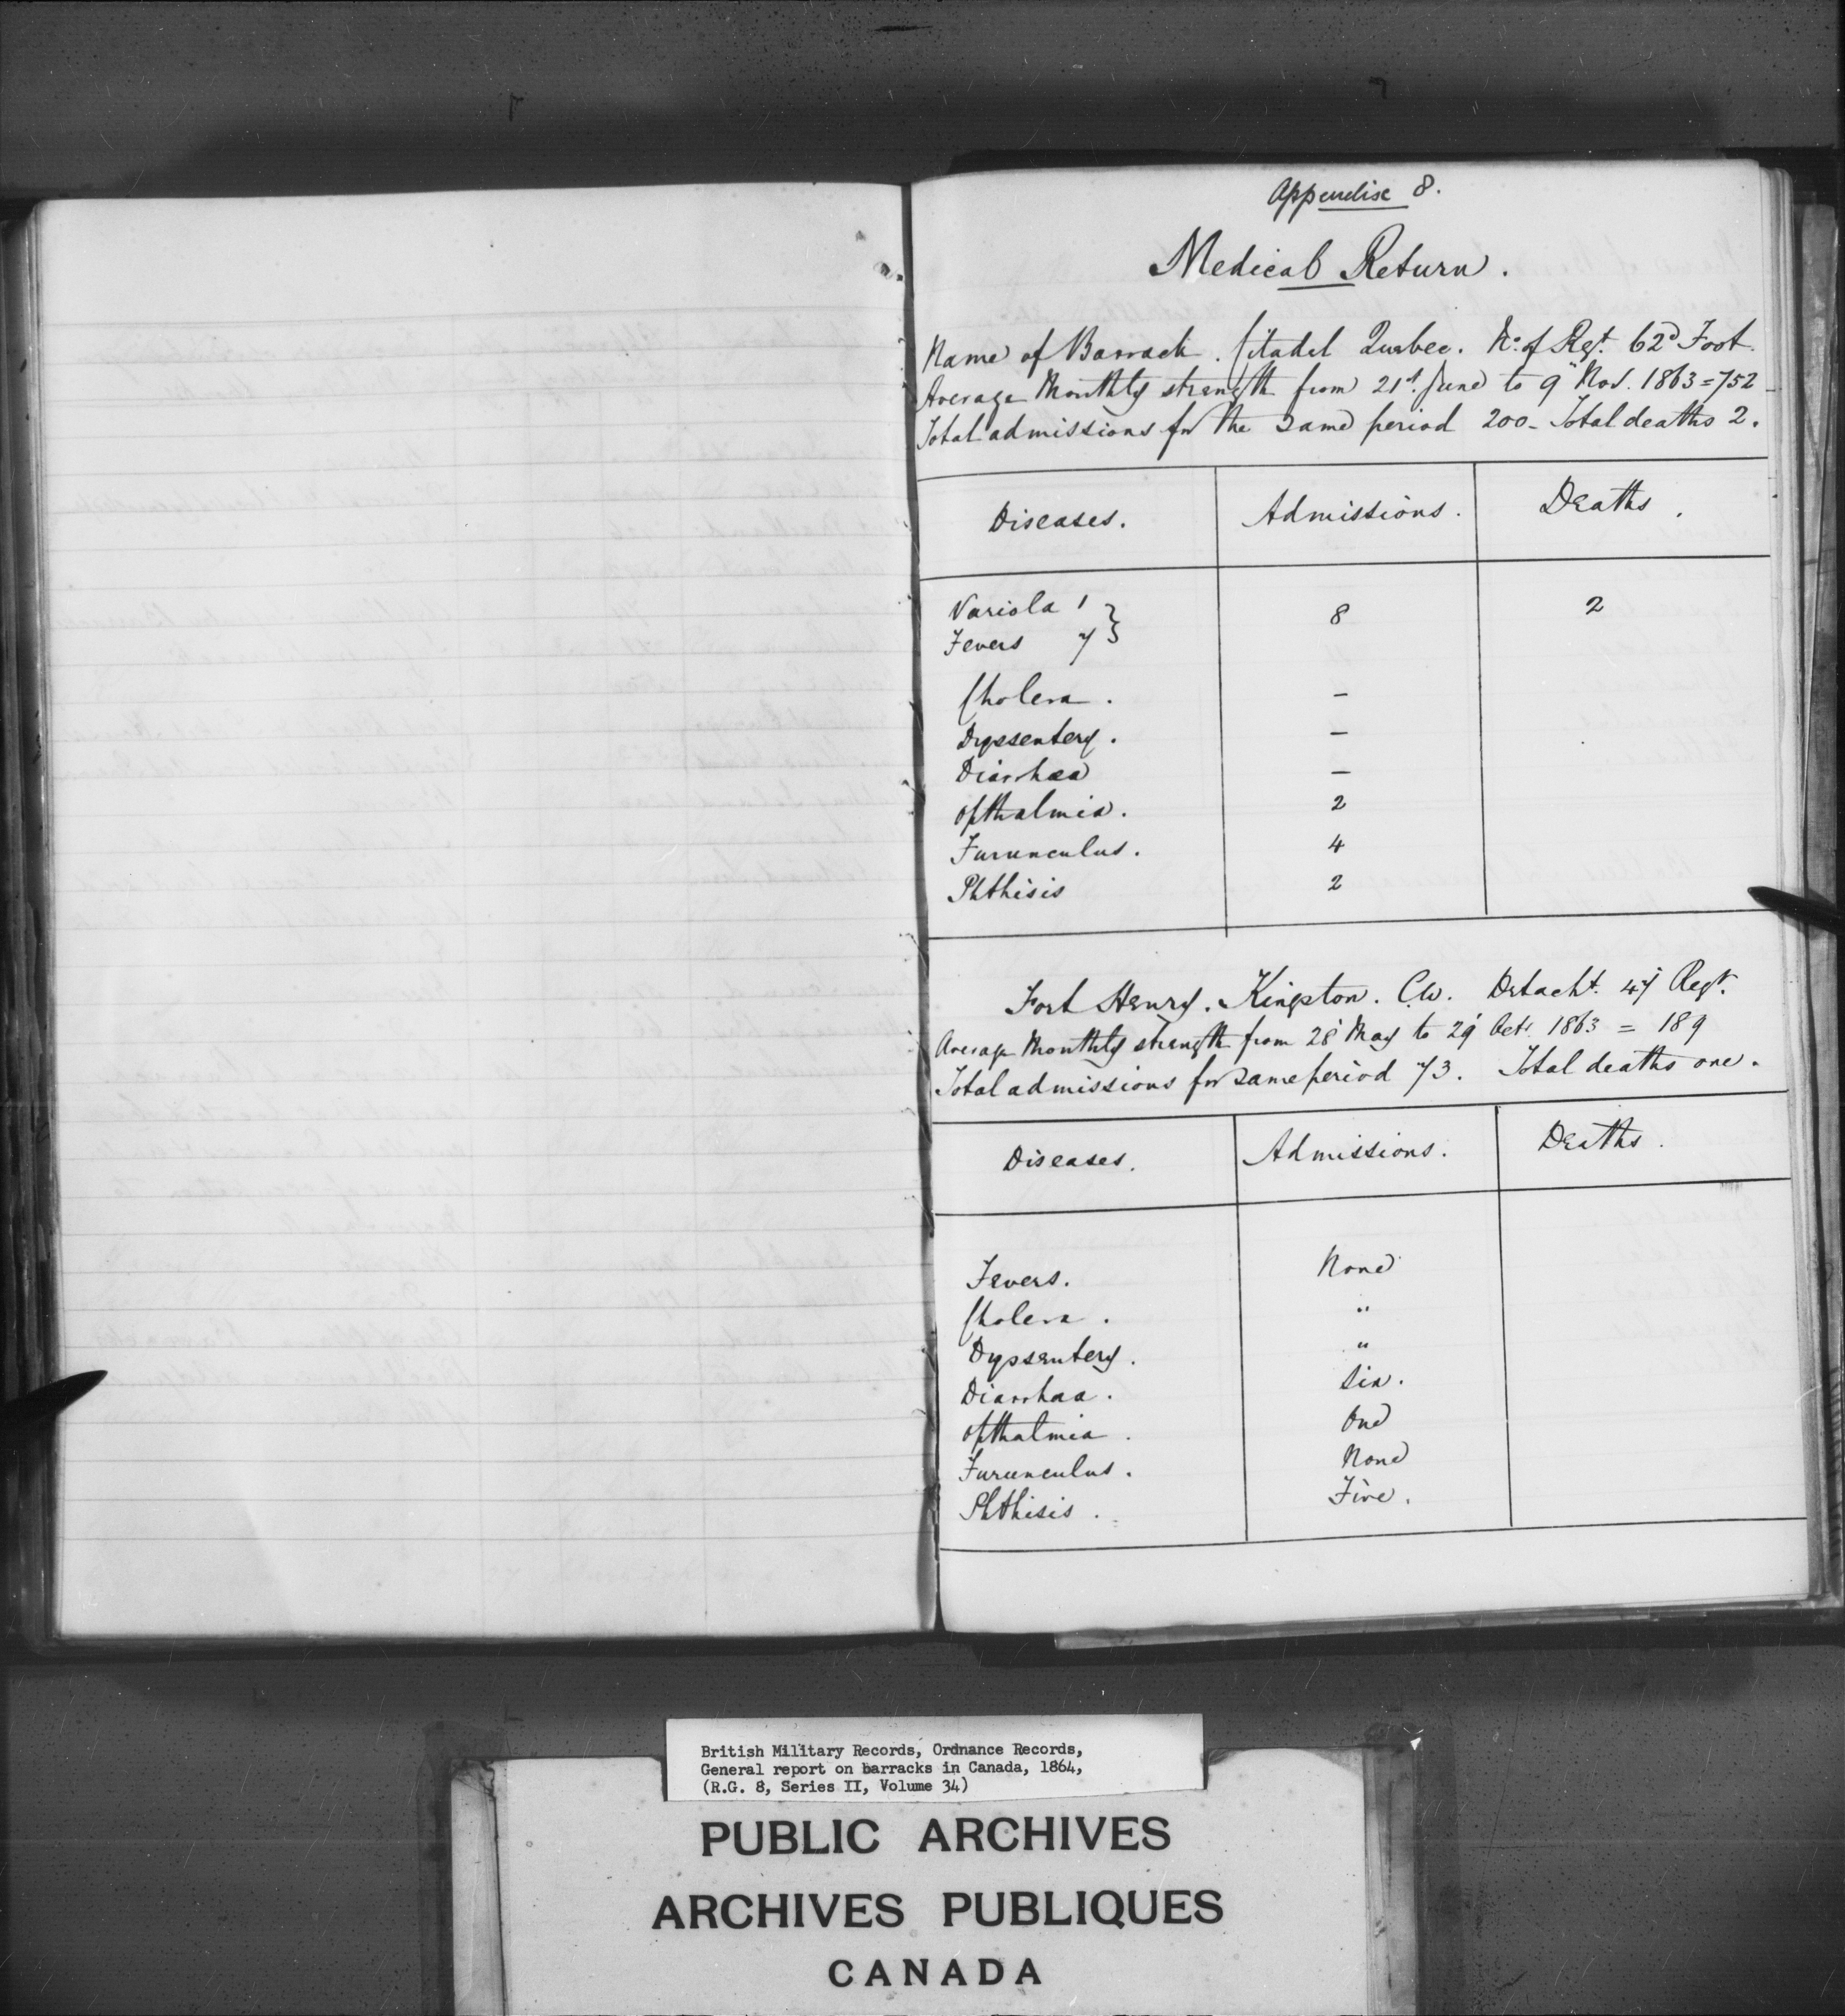 Appendix 8.
Medical Return.
Name of Barrack. Citadel Quebec. No. of Regt. 62d Foot.
Average Monthly strength from 21st June to 9" Nov. 1863 = 752
Total admissions for the same period 200 - Total deaths 2.
Diseases. Admissions. Deaths.
Variola 1 } 8 2
Fevers 7 }
Cholera. –
Dyssentery. –
Diarrhœa –
Opthalmia. 2
Furunculus. 4
Phthisis 2
Fort Henry. Kingston. C.W. Detacht. 47 Regt.
Average Monthly strength from 28 May to 29 Octr. 1863 = 189
Total admissions for same period 73. Total deaths one.
Diseases. Admissions. Deaths.
Fevers. None
Cholera. "
Dyssentery. "
Diarrhœa. Six.
Opthalmia. One
Furunculus. None
Phthisis. Five.
British Military Records, Ordnance Records,
General report on barracks in Canada, 1864,
(R.G. 8, Series II, Volume 34)
PUBLIC ARCHIVES
ARCHIVES PUBLIQUES
CANADA